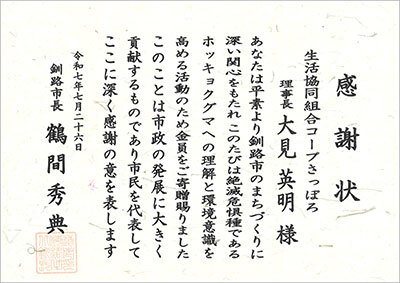 感謝状
生活協同組合コープさっぽろ
理事長 大見英明 様
あなたは平素より釧路市のまちづくりに
深い関心をもたれ このたびは絶滅危惧種である
ホッキョクグマへの理解と環境意識を
高める活動のため金員をご寄贈賜りました
このことは市政の発展に大きく
貢献するものであり市民を代表して
ここに深く感謝の意を表します
令和七年七月二十六日
釧路市長 鶴間秀典